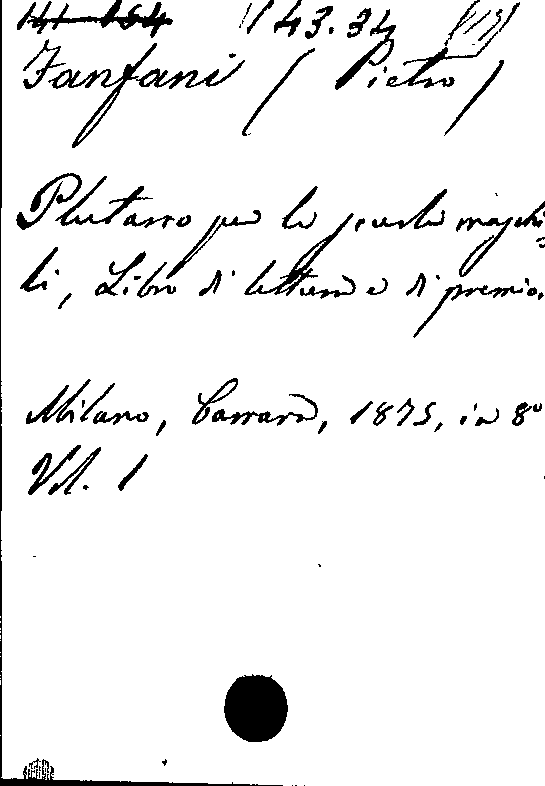 141 154 143.34 (13)
Fanfani (Pietro)
Plutarco per le scuole maschi=
li, Libro di lettura e di premio.
Milano, Carrara, 1875, in 8º
Vol. 1